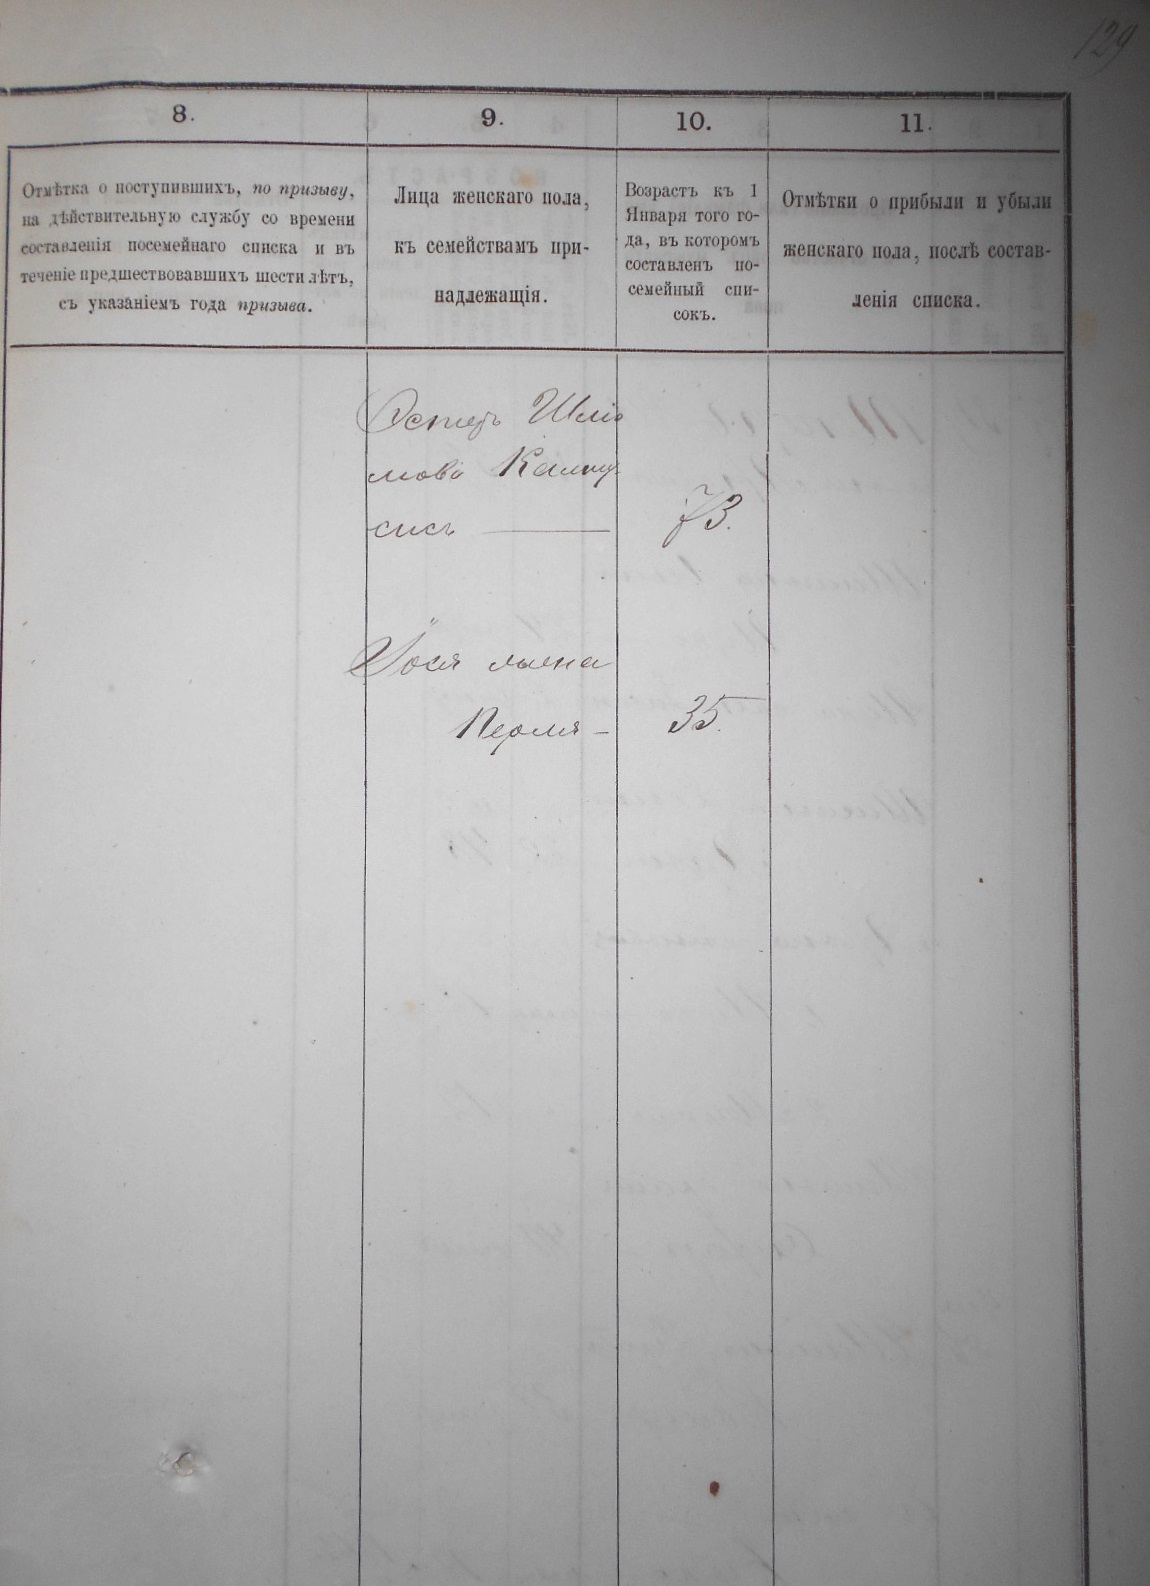 129
8.
9.
10.
11.
Отмѣтка о поступившихъ, по призыву,
на дѣйствительную службу со времени
составленія посемейнаго списка и въ
теченіе предшествовавшихъ шести лѣтъ,
съ указаніемъ года призыва.
Лица женскаго пола,
къ семействамъ при-
надлежащія.
Возрастъ къ 1
Января того го-
да, въ которомъ
составленъ по-
семейный спи-
сокъ.
Отмѣтки о прибыли и убыли
женскаго пола, послѣ состав-
ленія списка.
Эстеръ Шлiо
мова
73.
жена
Перля – 35.